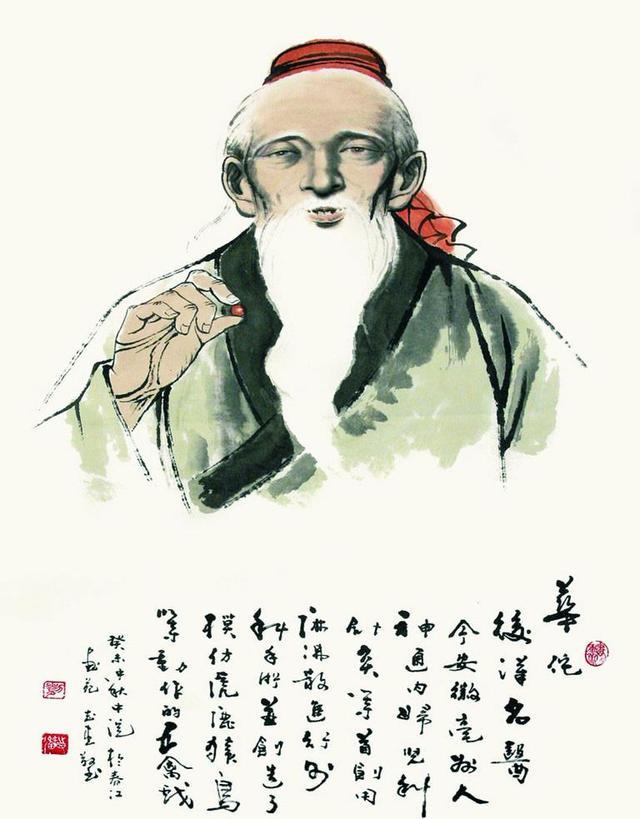 華佗
後漢名醫
今安徽亳人
通内婦兒科
針灸等首創用
麻沸散進行外
科手術並創造了
模仿虎鹿猿鳥
等動作的五禽戲
癸未中秋中浣於春江